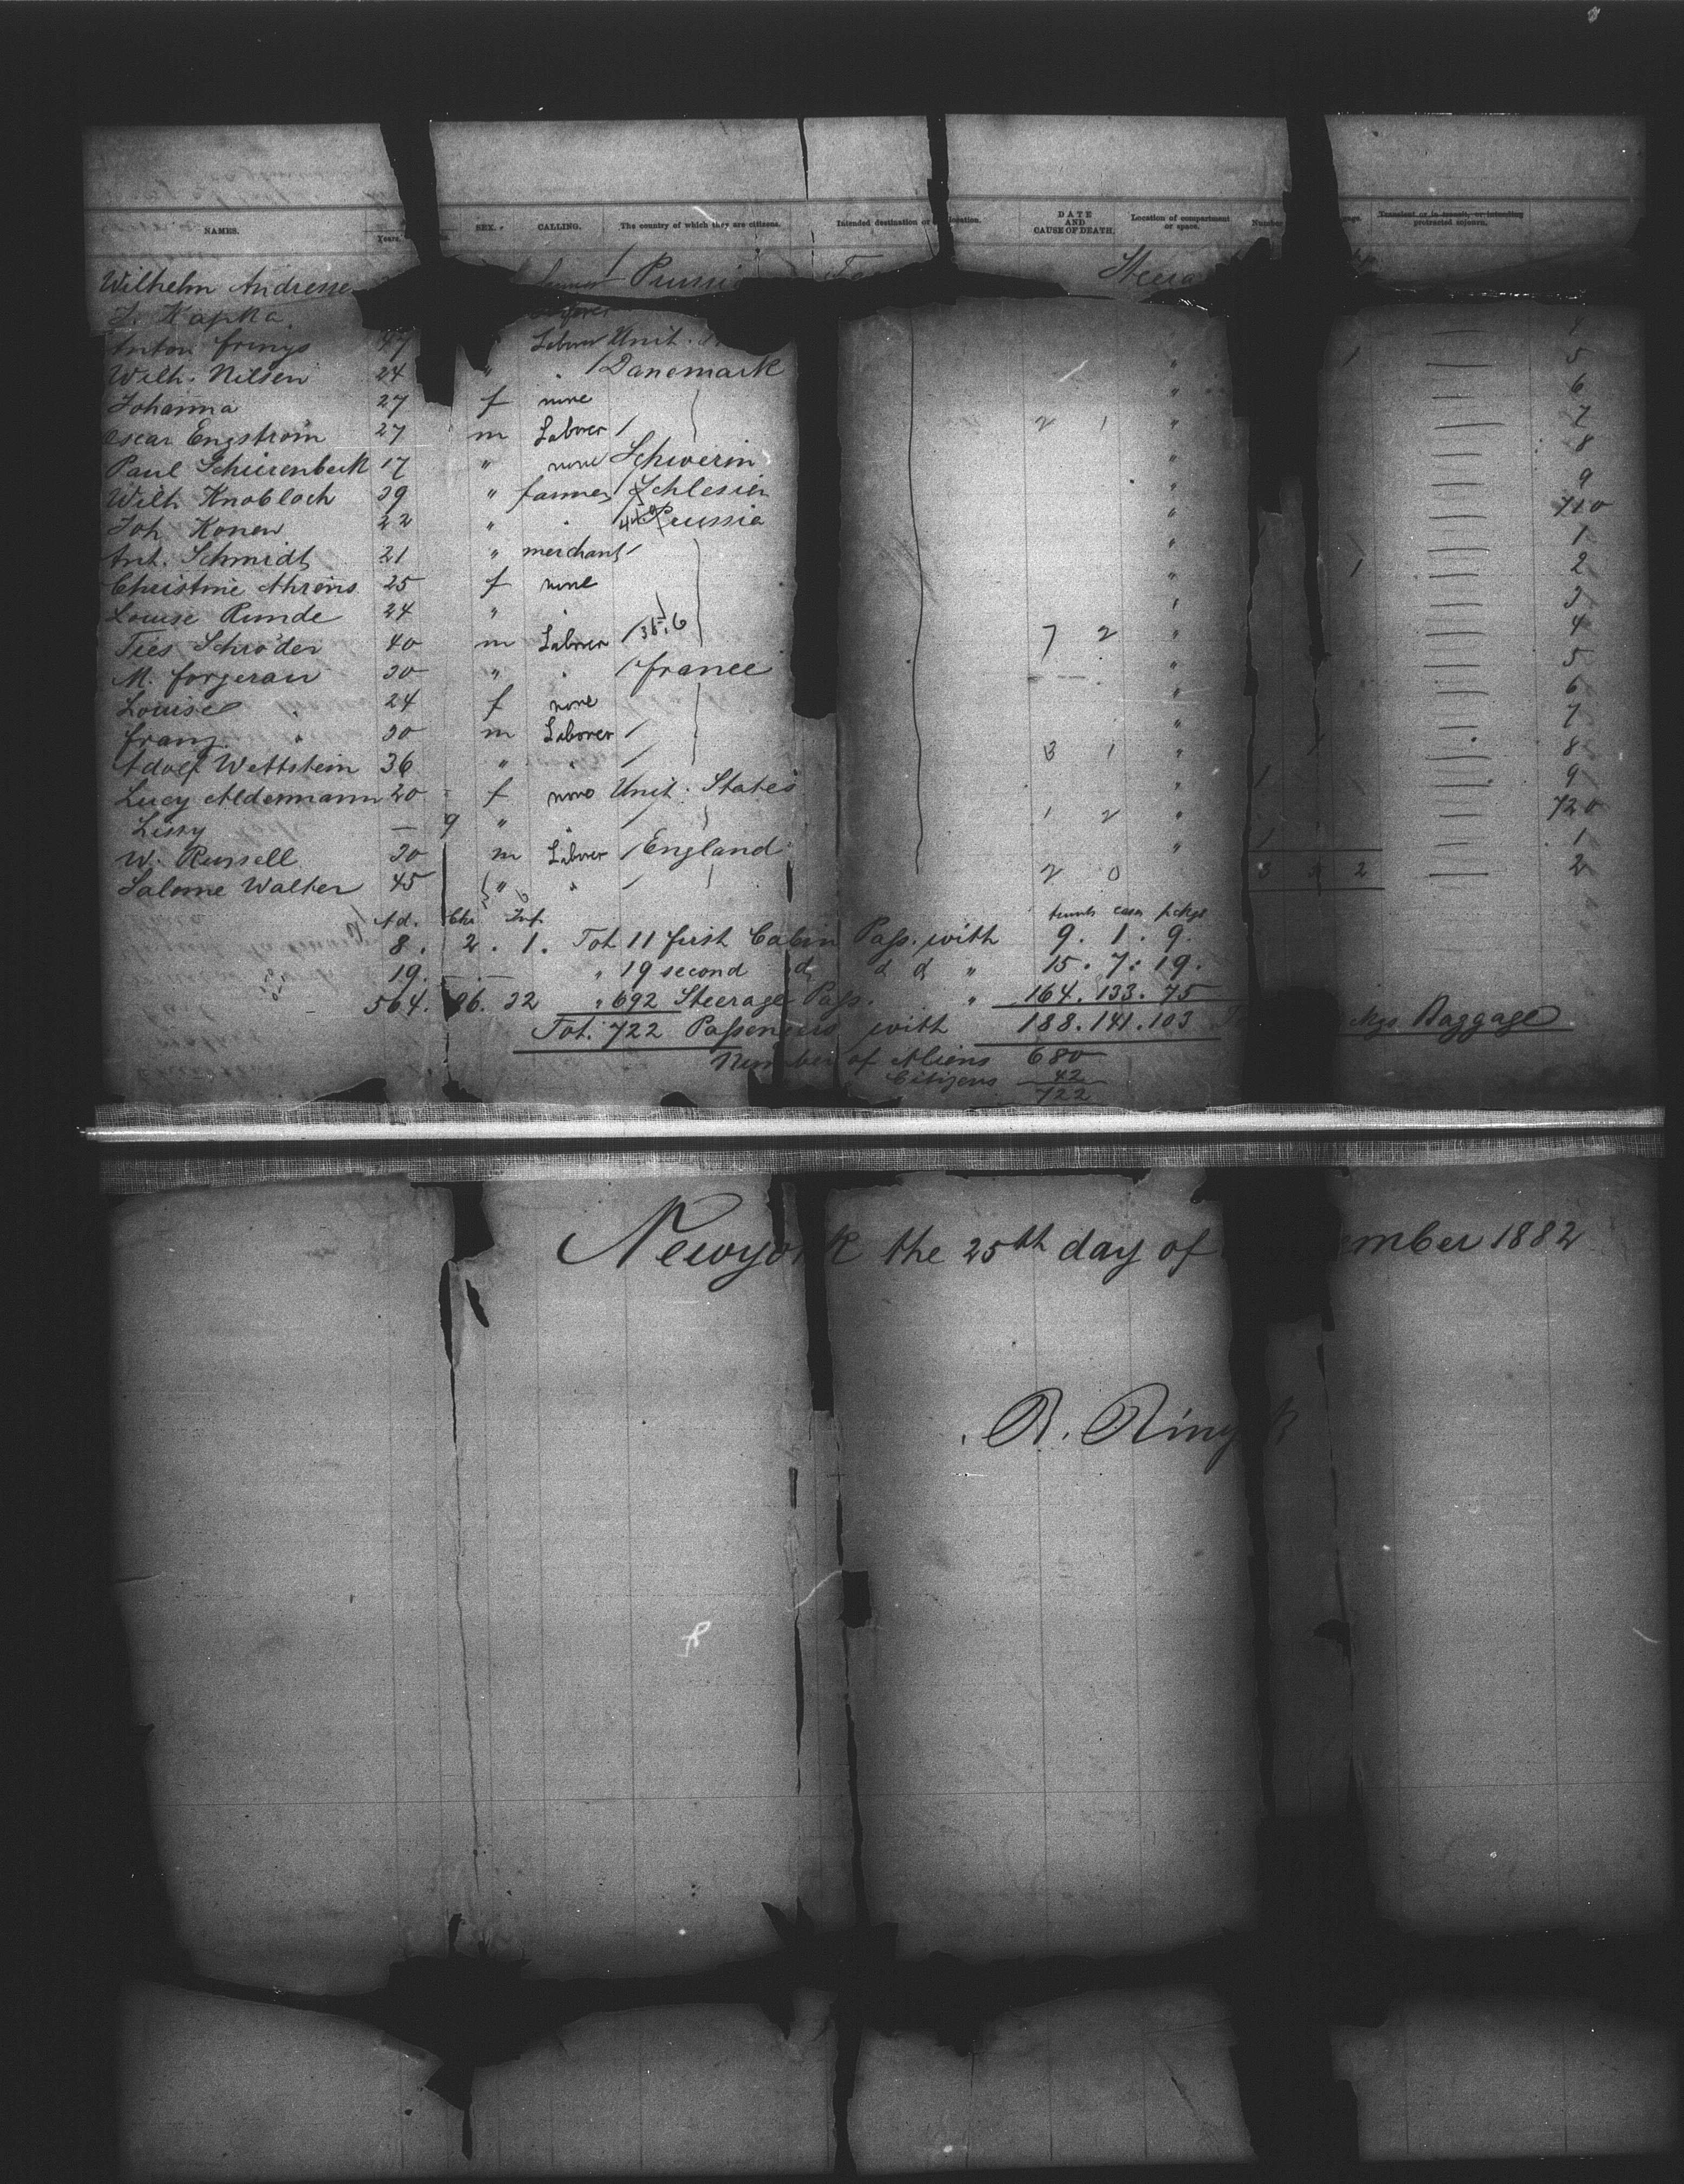 NAMES. Years. SEX. CALLING. The country of which they are citizens. Intended destination or location. DATE AND CAUSE OF DEATH. Location of compartment or space. Number Transient or in transit, or intending protracted sojourn.
Wilhelm Andresse Prussia Steera
J. Kapka
Anton Frings 47 Laborer Unit.
Wilh. Nilsen 24 " " Danemark " 1 5
Johanna 27 f none " 6
Oscar Engström 27 m Laborer 2 1 " 7
Paul Schürenbeck 17 " none Schwerin " 8
Wilh Knobloch 39 " farmer Schlesien " 9
Joh. Konew 22 " " Prussia " 710
Ant. Schmidt 21 " merchant " 1
Christine Ahrens 25 f none " 1 2
Louise Runde 24 " " 3
Ties Schröder 40 m Laborer 7 2 " 4
M. Forgerau 30 " " France " 5
Louise " 24 f none " 6
Franz " 30 m Laborer " 7
Adolf Wettstein 36 " " 3 1 " 8
Lucy Aldermann 20 f none Unit. States " 1 9
Lissy — 9 " " 1 2 " 720
W. Russell 30 m Laborer England " 1 1
Salome Walter 45 " " 2 0 3 2 2
Ad. Chr Inf. trunks cases pckgs
8. 2. 1. Tot. 11 first Cabin Pass. with 9. 1. 9.
19. — — " 19 second d d d " 15. 7. 19.
564. 96. 32 " 692 Steerage Pass. " 164. 133. 75
Tot. 722 Passengers with 188. 141. 103 Baggage
Number of Aliens 680
Citizens 42
722
Newyork the 25th day of ember 1882
R. Ring k